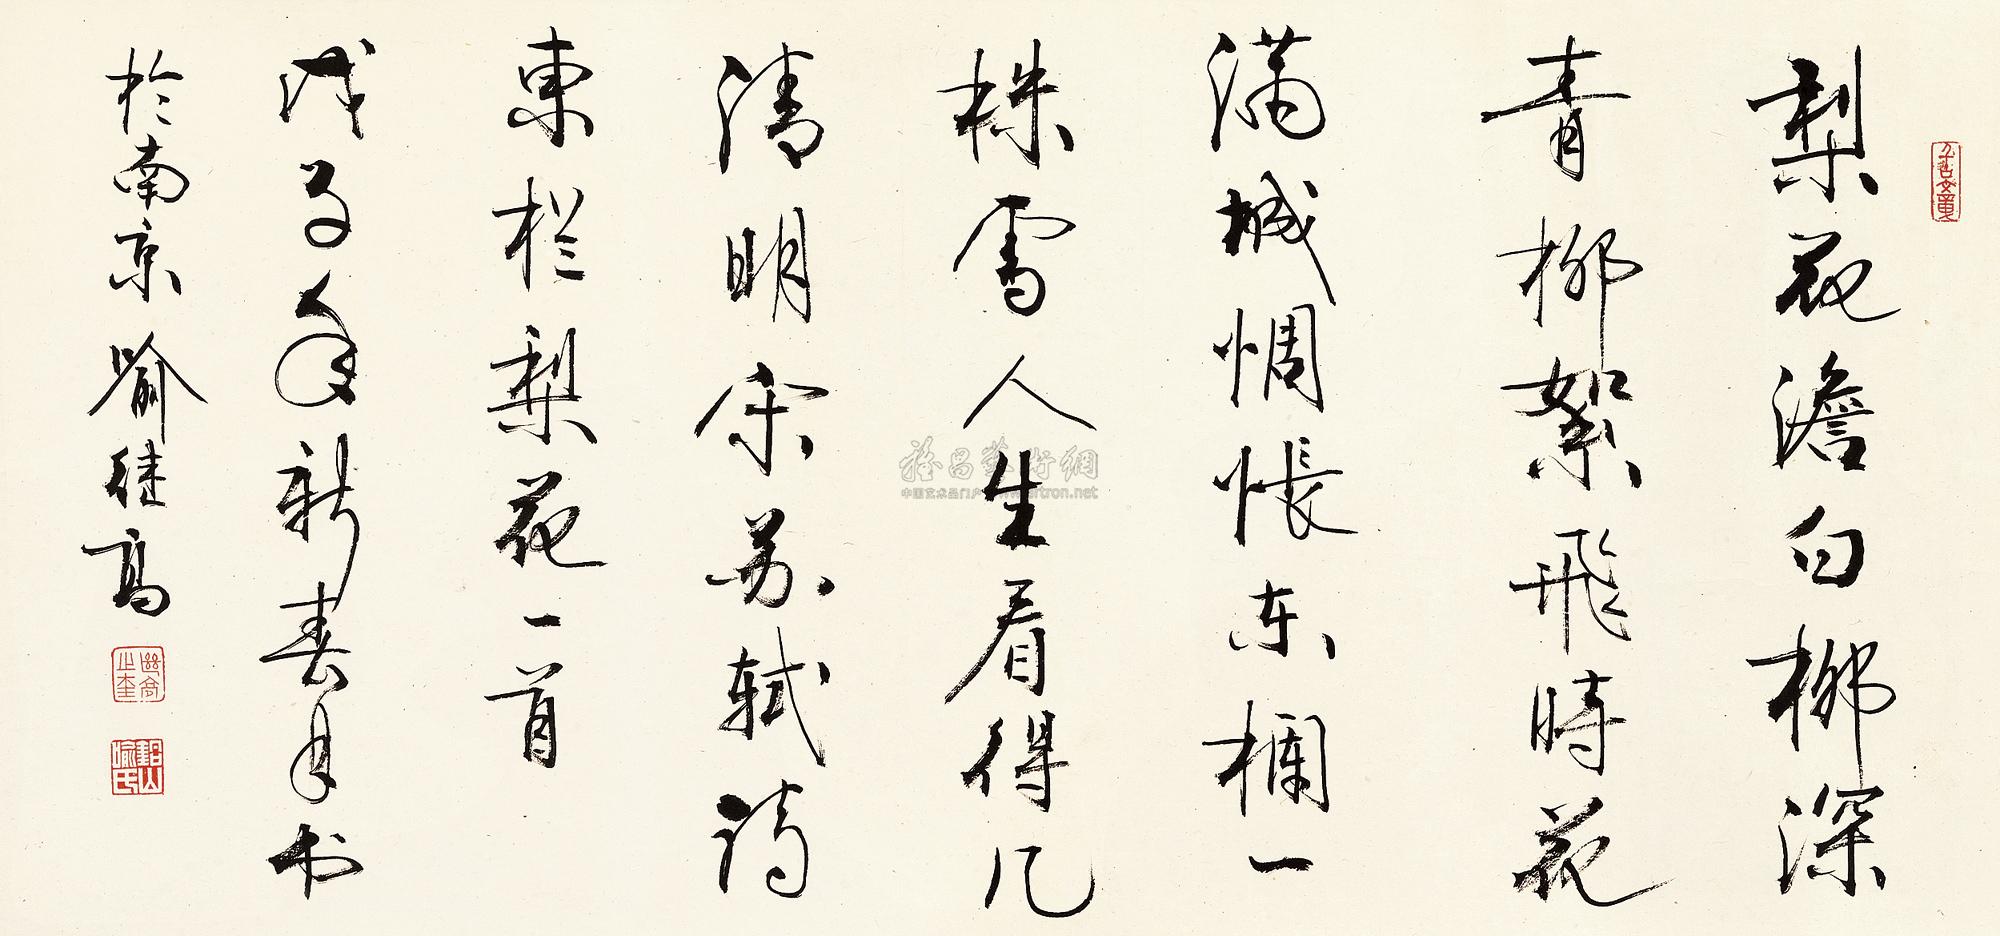 梨花澹白柳深
青柳絮飛時花
满城惆悵东欄一
株雪人生看得几
清明 宋苏轼诗
東栏梨花一首
戊子年新春月书
於南京 喻继高
雅昌艺术網
中国艺术品门户 artron.net
喻氏